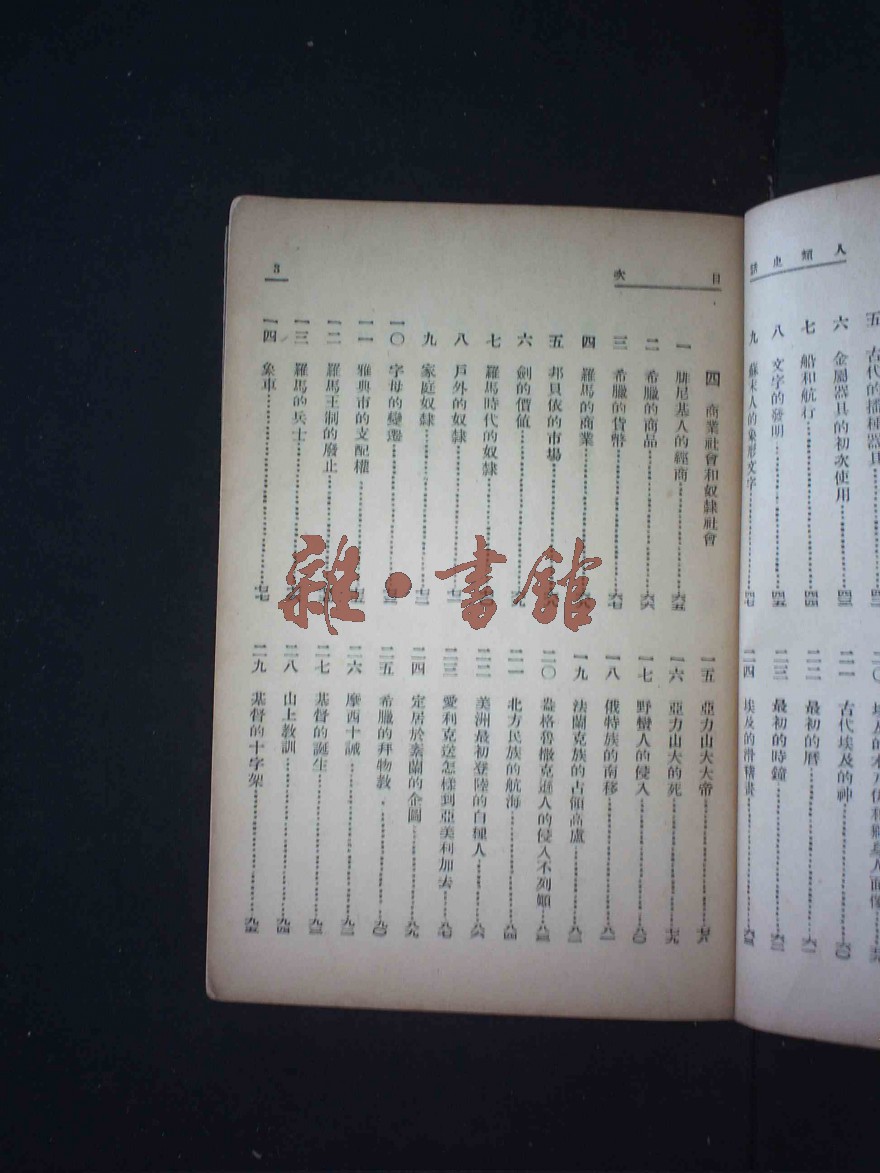 人類史話
五 古代的播種器具
六 金屬器具的初次使用……四三
七 船和航行……四四
八 文字的發明……四五
九 蘇末人的象形文字……四七
二〇 埃及的木乃伊和獅身人面像
二一 古代埃及的神……六〇
二二 最初的曆……六一
二三 最初的時鐘……六二
二四 埃及的滑稽畫……六三
目次
3
四 商業社會和奴隸社會
一 腓尼基人的經商……六五
二 希臘的商品……六六
三 希臘的貨幣……六七
四 羅馬的商業
五 邦貝依的市場
六 劍的價值
七 羅馬時代的奴隸
八 戶外的奴隸……七一
九 家庭奴隸……七二
一〇 字母的變遷
一一 雅典市的支配權
一二 羅馬王制的廢止
一三 羅馬的兵士
一四 象車……七七
一五 亞力山大大帝……七八
一六 亞力山大的死……七九
一七 野蠻人的侵入……八〇
一八 俄特族的南移……八一
一九 法蘭克族的占領高盧……八二
二〇 盎格魯撒克遜人的侵入不列顛……八三
二一 北方民族的航海……八四
二二 美洲最初登陸的白種人……八六
二三 愛利克送怎樣到亞美利加去……八七
二四 定居於素蘭的企圖……八九
二五 希臘的拜物教……九〇
二六 摩西十誡……九二
二七 基督的誕生……九三
二八 山上教訓……九四
二九 基督的十字架……九五
雜·書館